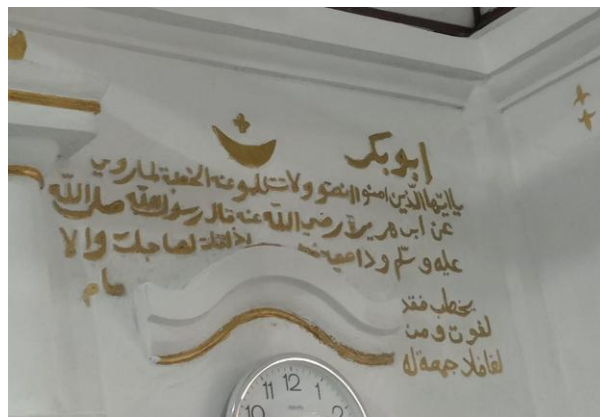 ابو بكر
ياايها الذين امنوا انصتو ولا تتكلمو عند الخطبة لما روي
عن ابي هريرة رضي الله عنه قال رسول الله صلى الله
عليه وسلم لصاحبك والا
مام
يخطب فقد
لغوت ومن
لغا فلا جمعة له
11 12 1
10 2